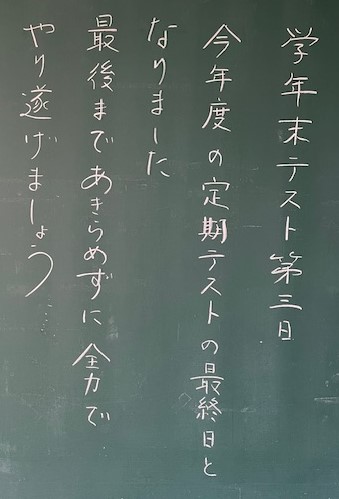 学年末テスト第三日
今年度の定期テストの最終日と
なりました
最後まであきらめずに全力で
やり遂げましょう…